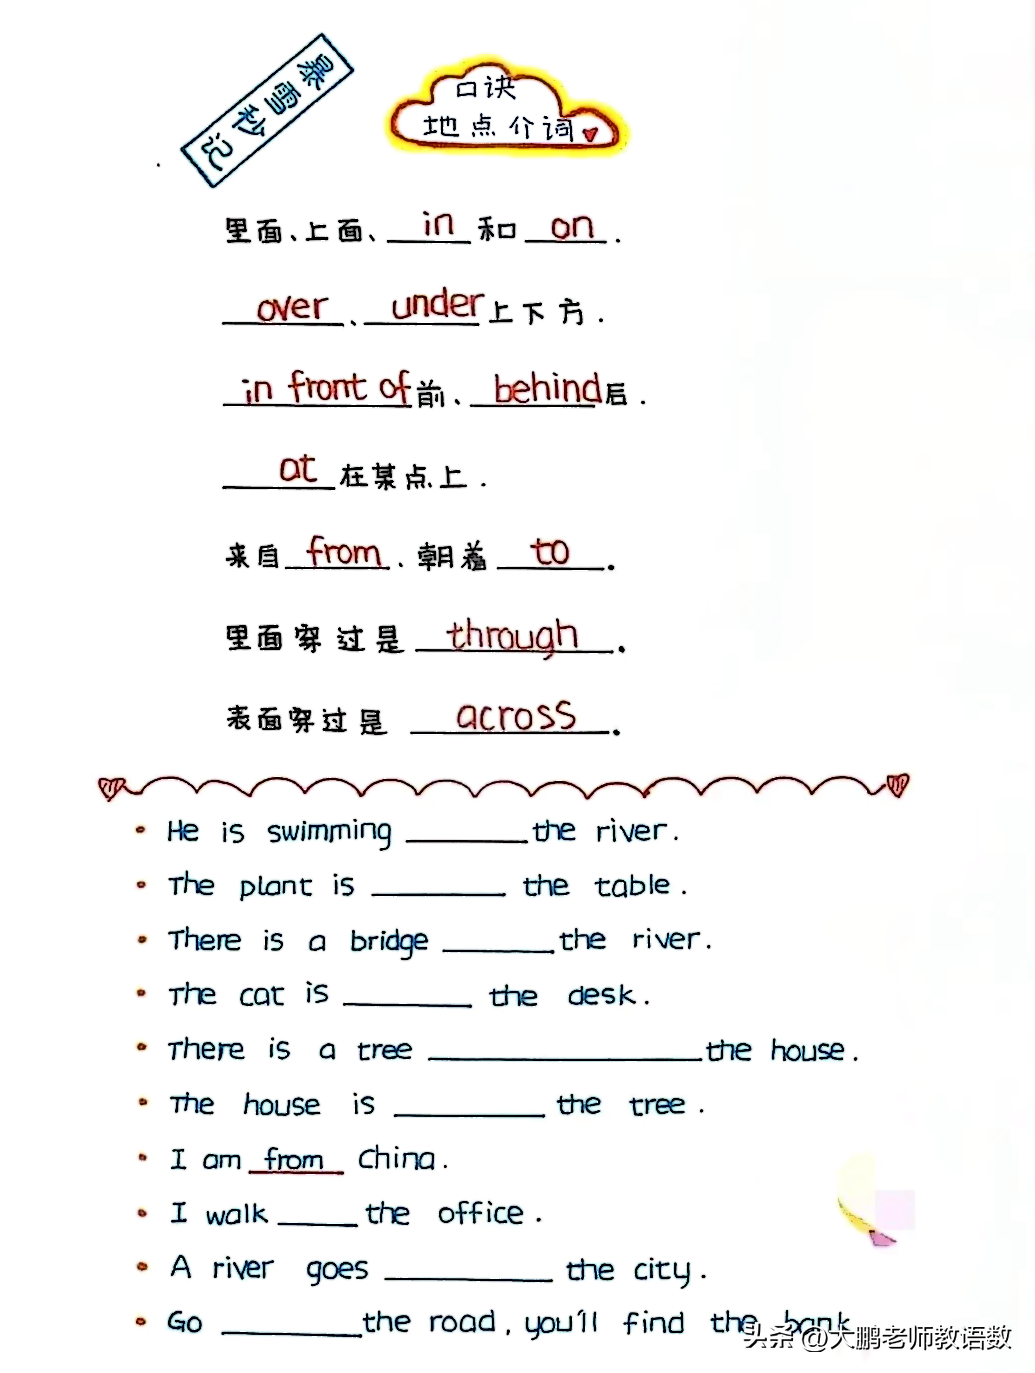 暴雪秒记
口诀
地点介词
里面、上面、in和on.
over、under上下方.
in front of前、behind后.
at在某点上.
来自from.朝着to.
里面穿过是through.
表面穿过是across.
• He is swimming ______ the river.
• The plant is ______ the table.
• There is a bridge ______ the river.
• The cat is ______ the desk.
• There is a tree ______ the house.
• The house is ______ the tree.
• I am from China.
• I walk ______ the office.
• A river goes ______ the city.
• Go ______ the road, you'll find the bank
头条 @大鹏老师教语数